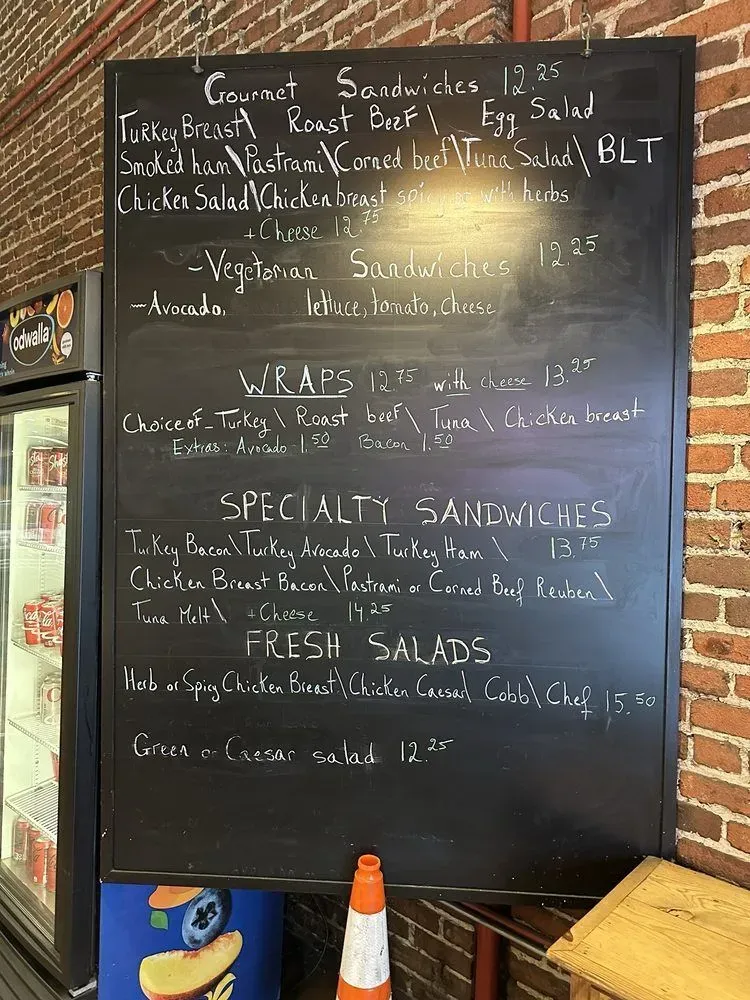 Gourmet Sandwiches 12.25
Turkey Breast\ Roast Beef \ Egg Salad
Smoked ham\Pastrami\Corned beef\Tuna Salad\ BLT
Chicken Salad\Chicken breast spicy or with herbs
+ Cheese 12.75
-Vegetarian Sandwiches 12.25
~Avocado, lettuce, tomato, cheese
WRAPS 12.75 with cheese 13.25
Choice of - Turkey \ Roast beef \ Tuna \ Chicken breast
Extras: Avocado - 1.50 Bacon 1.50
SPECIALTY SANDWICHES
Turkey Bacon\Turkey Avocado \ Turkey Ham \ 13.75
Chicken Breast Bacon\Pastrami or Corned Beef Reuben\
Tuna Melt \ + Cheese 14.25
FRESH SALADS
Herb or Spicy Chicken Breast\Chicken Caesar\ Cobb\ Chef 15.50
Green or Caesar salad 12.25
odwalla